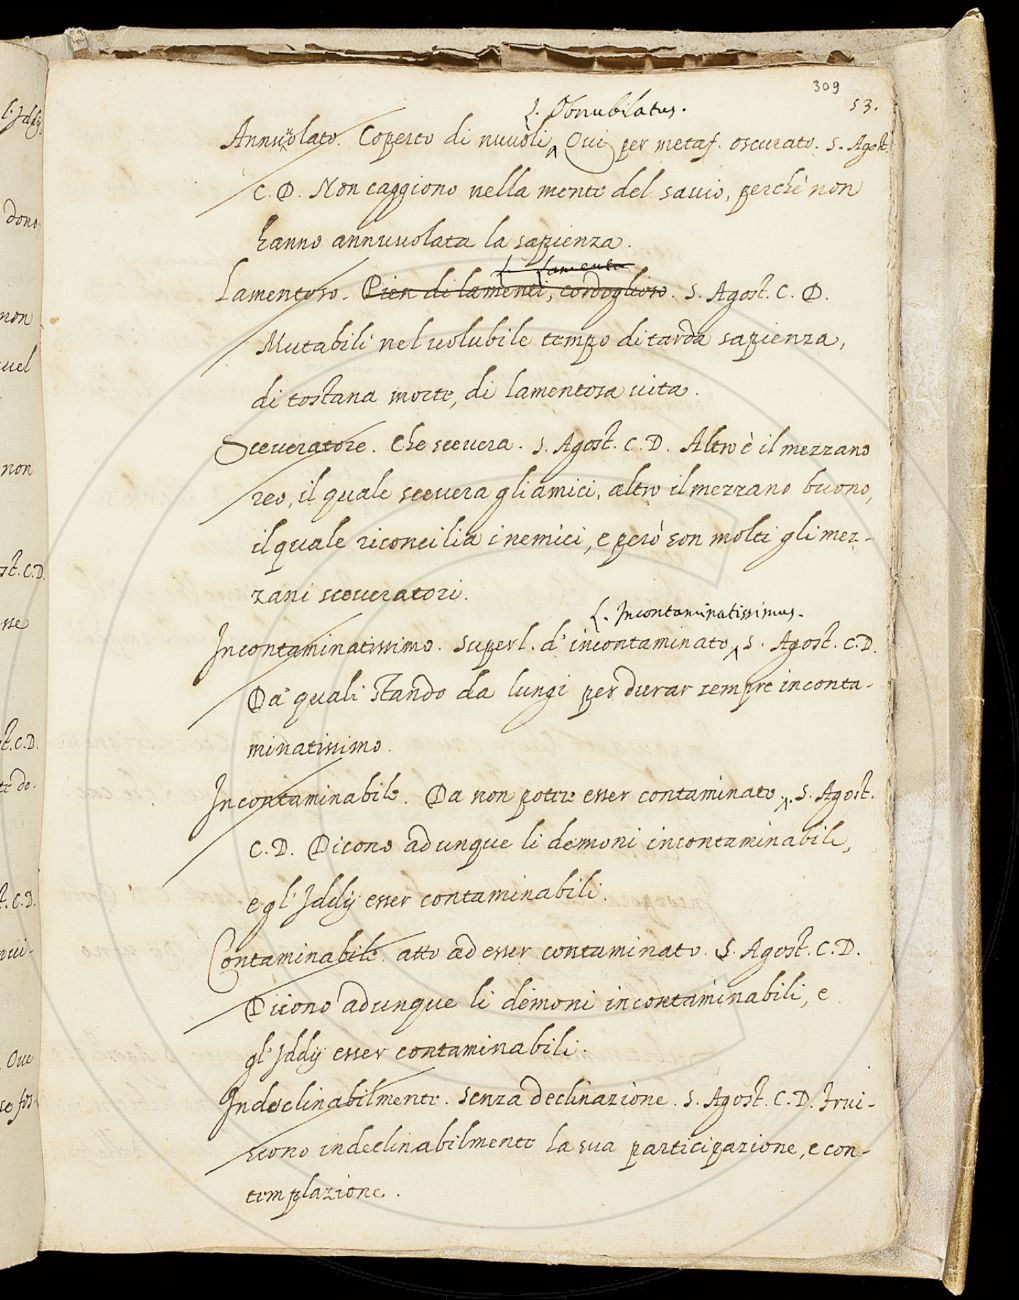 309
53.
L. Obnubilatus.
Annuvolato. Coperto di nuvoli, Qui per metaf. oscurato. S. Agost.
C. D. Non caggiono nella mente del savio, perchè non
hanno annuvolata la sapienza.
L. Lamenta
Lamentoso. Pien di lamenti, cordoglioso. S. Agost. C. D.
Mutabili nel volubile tempo di tarda sapienza,
di tostana morte, di lamentosa vita.
Sceveratore. Che scevera. S. Agost. C. D. Altro è il mezzano
reo, il quale scevera gli amici, altro il mezzano buono,
il quale riconcilia i nemici, e però son molti gli mez-
zani sceveratori.
L. Incontaminatissimus.
Incontaminatissimo. Superl. d' incontaminato, S. Agost. C. D.
Da' quali stando da lungi per durar sempre inconta-
minatissimo.
Incontaminabile. Da non poter esser contaminato. S. Agost.
C. D. Dicono adunque li demoni incontaminabili,
e gl' Iddij esser contaminabili.
Contaminabile. atto ad esser contaminato. S. Agost. C. D.
Dicono adunque li demoni incontaminabili, e
gl' Iddij esser contaminabili.
Indeclinabilmente. Senza declinazione. S. Agost. C. D. Frui-
scono indeclinabilmente la sua participazione, e con-
templazione.
dono
non
non
Ove